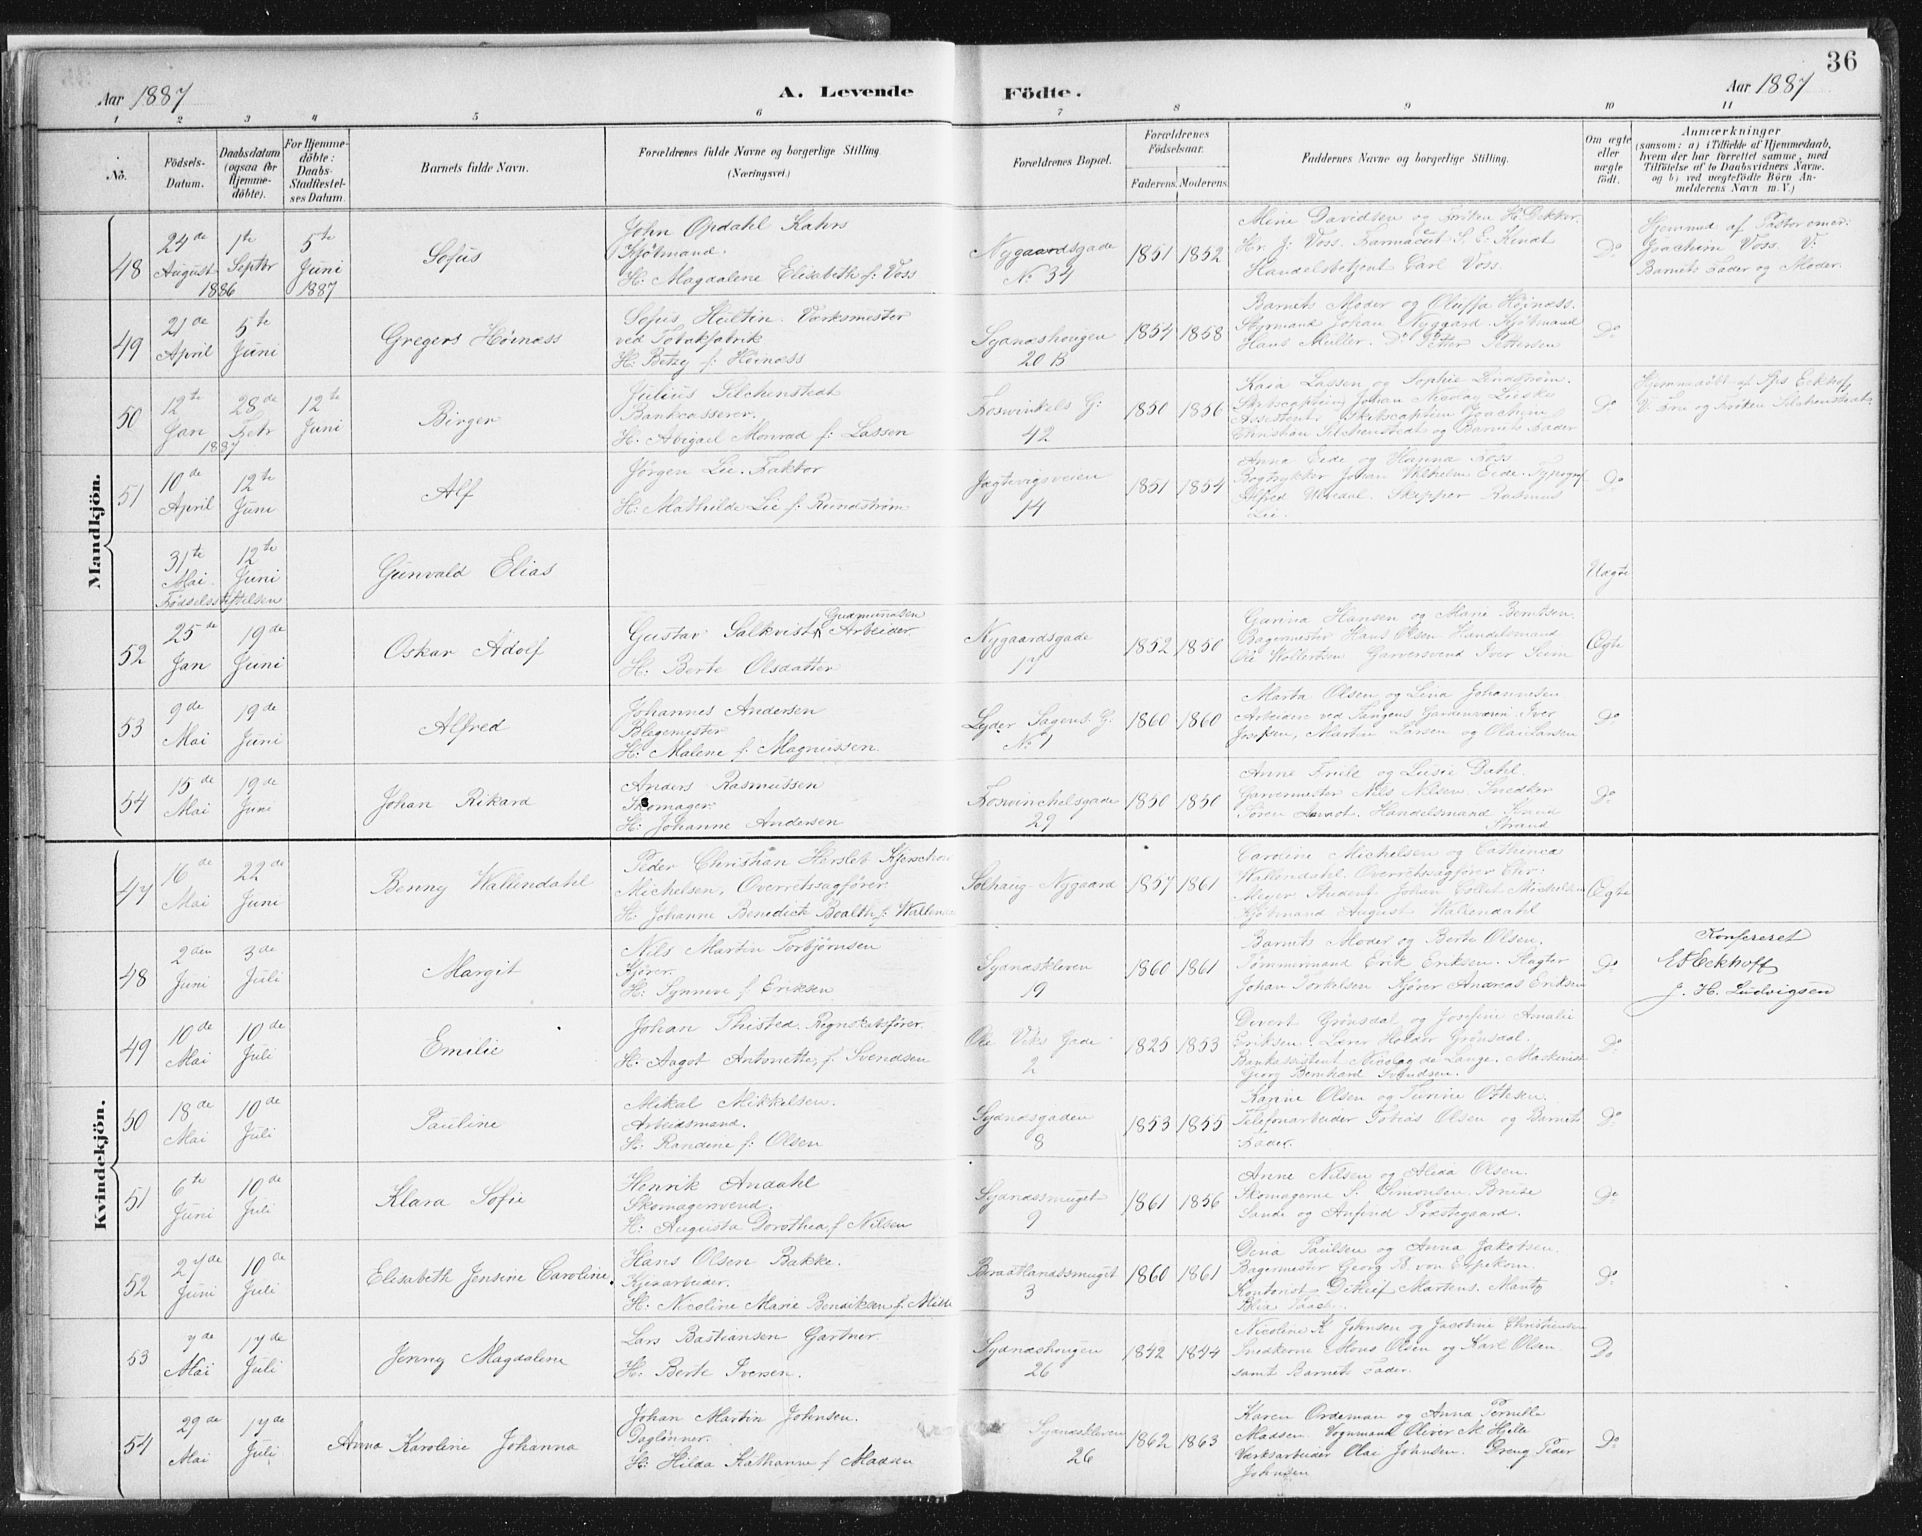 36
Aar 1887
A. Levende
Födte.
Aar 1887
1 2 3 4 5 6 7 8 9 10 11
No.
Födsels-Datum.
Daabsdatum (ogsaa for Hjemme-döbte).
For Hjemme-döbte: Daabs-Stadfæstel-ses Datum.
Barnets fulde Navn.
Forældrenes fulde Navne og borgerlige Stilling.
(Næringsvei.)
Forældrenes Bopæl.
Forældrenes Födselsaar.
Faderens. Moderens.
Faddernes Navne og borgerlige Stilling.
Om ægte eller uægte födt.
Anmærkninger
(saasom: a) i Tilfælde af Hjemmedaab, hvem der har forrettet samme, med Tilföielse af to Daabsvidners Navne, og b) ved uægtefödte Börn An-melderens Navn m. V.)
Mandkjön.
48
24de August 1886
1te Septbr
5te Juni 1887
Sofus
John Opdahl Kahrs
Kjøtmand.
H: Magdalene Elisabeth f: Voss
Nygaardsgade
No 34
1851 1852
Mine Davidsen og Frøken H. Dekker.
Hr. J. Voss. Farmaceut S. E. Kindt
Handelsbetjent Carl Voss.
Do
Hjemmed af Pastor emer:
Joachim Voss. V:
Barnets Fader og Moder.
49
21de April
5te Juni
Gregers Høinæss
Sofus Hultin. Værksmester
ved Tobakfabrik
H: Betzy f: Høinæss
Sydneshougen
20 B
1854 1858
Barnets Moder og Oluffa Høinæss.
Styrmand Johan Nyggard. Kjøtmand
Hans Müller. Do Petter Pettersen
Do
50
12te Jan 1887
28de Febr
12te Juni
Birger
Julius Silchenstedt
Bankcasserer.
H. Abigael Monrad f: Lassen
Foswinkels G:
42
1850 1856
Kaia Lassen og Sophie Lindstrøm.
Christian Silchenstedt og Barnets Fader
Do
Hjemmedøbt af Sps Eckhoff
V: Fru og Frøken Silchenstedt
51
10de April
12te Juni
Alf
Jørgen Lie. Faktor
H: Mathilde Lie f: Rundstrøm
Jægtevigsveien
14
1851 1854
Anna Eide og Hanna Foss
Bogtrykker Johan Wilhelm Eide. Typograf
Alfred Uredal. Skipper Rasmus
Lie.
Do
31te Mai.
12te Juni
Fødselsstiftelsen
Gunvald Elias
Uægte
52
25de Jan
19de Juni
Oskar Adolf
Gudmundsen
Gustav Salkvist, Arbeider
H: Berte Olsdatter
Nygaardsgade
17
1852 1850
Garina Hansen og Marie Berntsen
Bagermester Hans Olsen Handelsmand
Ole Wollertsen Garversvend Iver Seim
Ægte
53
9de Mai
19de Juni
Alfred
Johannes Andersen
Blegemester
H: Malene f: Magnussen.
Lyder Sagens G:
No 1
1860 1860
Marta Olsen og Lina Johannesen
Arbeidere ved Fangens Garderværi Iver
Josefsen, Martin Larsen og Olai Larsen
Do
54
15de Mai
19de Juni
Johan Rikard
Anders Rasmussen
Skomager.
H: Johanne Andersen
Foswinchelsgade
29
1850 1850
Anne Friile og Lusie Dahl.
Garvermester Nils Nilsen. Snedker
Søren Aavaot. Handelsmand
Strand
Do
Kvindekjön.
47
16de Mai
22de Juni
Benny Wallendahl
Peder Christian Hersleb Kjerschow
Michelsen, Overretssagfører.
H: Johanne Benedicte Boalth f: Wallendahl
Solhaug-Nygaard
1857 1861
Caroline Michelsen og Cathinca
Wallendahl. Overretssagfører Chr:
Meyer Student Johan Collet Michelsen
Kjøtmand August Wallendahl
Ægte
48
2den Juni
3de Juli
Margit
Nils Martin Torbjørnsen
Kjører.
H: Synneve f: Eriksen
Sydneskleven
19
1860 1861
Barnets Moder og Berte Olsen.
Tømmermand Erik Eriksen. Slagter
Johan Torkelsen Kjører Andreas Eriksen
Do
Konfereret
E Eckhoff
J. H. Ludvigsen
49
10de Mai
10de Juli
Emilie
Johan Thisted. Regnskabsfører.
H: Aagot Antonette f: Svendsen
Ole Viks Gade
2
1825 1853
Divert Grønsdal og Josefine Amalie
Eriksen. Lærer Haldor Grønsdal.
Bankassistent Nicolay de Lange. Maskinist
Georg Bernhard Svendsen.
Do
50
18de Mai
10de Juli
Pauline
Mikal Mikkelsen.
Arbeidsmand.
H: Randine f: Olsen
Sydnesgaden
8
1853 1855
Karine Olsen og Turine Ottesen.
Telefonarbeider Tobias Olsen og Barnets
Fader.
Do
51
6te Juni
10de Juli
Klara Sofie
Henrik Andahl
Skomagersvend.
H: Augusta Dorothea f Nilsen
Sydnessmuget
9
1861 1856
Anne Nilsen og Alida Olsen.
Skomagerne S. Simonsen. Brithe
Sande og Anfind Præstegaard.
Do
52
27de Juni
10de Juli
Elisabeth Jensine Caroline.
Hans Olsen Bakke.
Kjøiarbeider.
H: Nicoline Marie Bendiksen f. Milde
Braatlandssmuget
3
1860 1861
Dina Paulsen og Anna Jakobsen.
Bagermester Georg B. von Erpekom.
Kontorist Ditlef Martens. Mantz
Do
53
7de Mai
17de Juli
Jenny Magdalene
Lars Bastiansen Gartner.
H: Berte Iversen.
Sydneshougen
26
1842 1844
Nicoline K Johnsen og Jacobine Christiansen
Snedkerne Mons Olsen og Karl Olsen
samt Barnets Fader.
Do
54
29de Mai
17de Juli
Anna Karoline Johanna
Johan Martin Johnsen.
Daglønner.
H: Hilda Katharine f Madsen
Sydneskleven
26
1862 1863
Karen Ordeman og Anna Pernille
Madsen. Vognmand Oliver M. Hjelle
Værksarbeider Olai Johnsen. Dreng Peder
Johnsen
Do